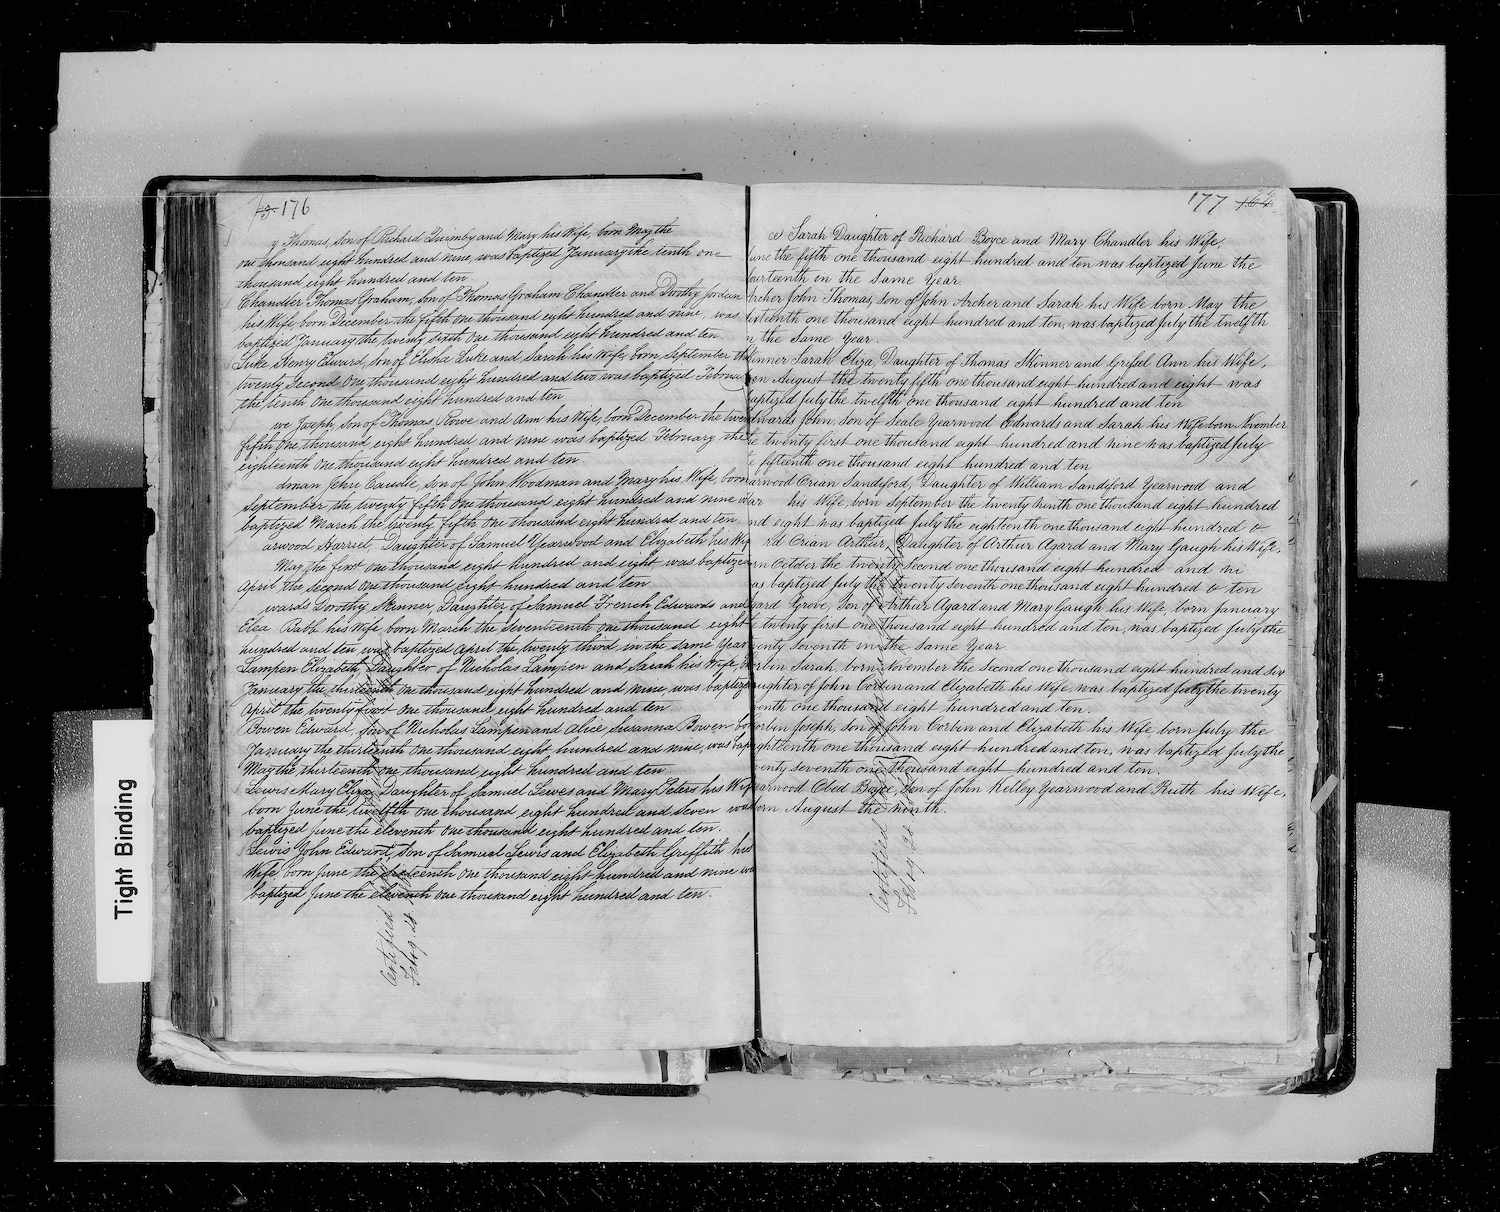 176
y Thomas, Son of Richard Quimby and Mary his Wife, born May the
one thousand eight hundred and nine, was baptized January the tenth one
thousand eight hundred and ten
Chandler Thomas Graham, Son of Thomas Graham Chandler and Dorothy Jordan
his Wife born December the fifth one thousand eight hundred and nine, was
baptized January the twenty sixth one thousand eight hundred and ten
Luke Henry Edward, Son of Elisha Luke and Sarah his Wife, born September the
twenty Second One thousand eight hundred and two was baptized Februa
the tenth One thousand eight hundred and ten
we Joseph, Son of Thomas Rowe and Ann his Wife, born December the twen
fifth One thousand eight hundred and nine was baptized February the
eighteenth One thousand eight hundred and ten
dman Jehu Caudle, Son of John Woodman and Mary his Wife born
September the twenty fifth One thousand eight hundred and nine
baptized March the twenty fifth One thousand eight hundred and ten
arwood Harriel, Daughter of Samuel Yearwood and Elizabeth his Wif
May the first one thousand eight hundred and eight was baptize
April the Second One thousand eight hundred and ten
wards Dorothy Skinner, Daughter of Samuel French Edwards and
Elea Babb his Wife born March the Seventeenth one thousand eight
hundred and ten was baptized April the twenty third in the same Year
Lampen Elizabeth, Daughter of Nicholas Lampen and Sarah his Wife
January the thirteenth One thousand eight hundred and nine, was baptize
April the twenty first One thousand eight hundred and ten
Bowen Edward Son of Nicholas Lampen and Alice Susanna Bowen bo
January the thirteenth One thousand eight hundred and nine, was bap
May the thirteenth One thousand eight hundred and ten
Lewis Mary Eliza, Daughter of Samuel Lewes and Mary Peters his Wif
born June the twelfth One thousand eight hundred and Seven was
baptized June the eleventh One thousand eight hundred and ten.
Lewis John Edward, Son of Samuel Lewis and Elizabeth Greffith his
Wife born June the Sixteenth One thousand eight hundred and nine wa
baptized June the eleventh One thousand eight hundred and ten.
Certified
Feby 24
177
ce Sarah Daughter of Richard Boyce and Mary Chandler his Wife,
une the fifth one thousand eight hundred and ten was baptized June the
ourteenth in the Same Year
Archer John Thomas, Son of John Archer and Sarah his Wife born May the
one thousand eight hundred and ten, was baptized July the twelfth
n the Same Year.
kinner Sarah Eliza, Daughter of Thomas Skinner and Grysel Ann his Wife,
orn August the twenty fifth one thousand eight hundred and eight was
aptized July the twelfth one thousand eight hundred and ten
dwards John, Son of Seale Yearwood Edwards and Sarah his Wife born November
he twenty first one thousand eight hundred and nine was baptized July
he fifteenth one thousand eight hundred and ten
earwood Crian Sandford, Daughter of William Sandford Yearwood and
his Wife, born September the twenty ninth one thousand eight hundred
nd eight was baptized July the eighteenth one thousand eight hundred &
rd Crian Arthur, Daughter of Arthur Agard and Mary Gaugh his Wife,
rn October the twenty Second one thousand eight hundred and ni
as baptized July the twenty seventh one thousand eight hundred & ten
gard Grove, Son of Arthur Agard and Mary Gaugh his Wife, born January
he twenty first one thousand eight hundred and ten, was baptized July the
wenty Seventh in the Same Year
orbin Sarah, born November the Second one thousand eight hundred and six
aughter of John Corbin and Elizabeth his Wife, was baptized July the twenty
venth one thousand eight hundred and ten.
orbin Joseph, Son of John Corbin and Elizabeth his Wife born July the
ighteenth one thousand eight hundred and ten, was baptized July the
wenty seventh one thousand eight hundred and ten.
earwood Obed Boyce, Son of John Kelley Yearwood and Ruth his Wife,
orn August the ninth.
Certified
Feby 24
Tight Binding